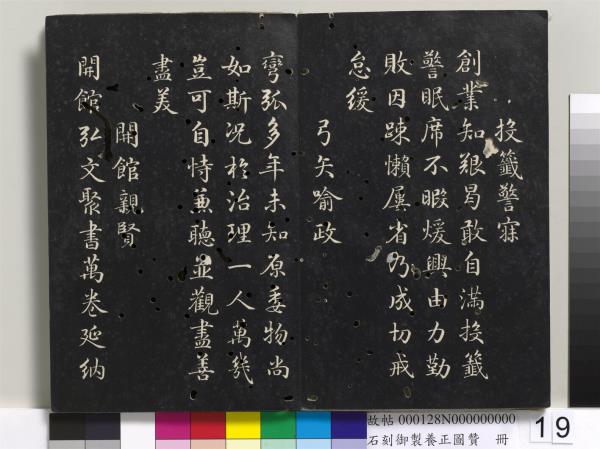 投籤警寐
創業知艱曷敢自滿投籤
警眠席不暇煖興由力勤
敗因疎懶屢省乃成切戒
怠緩
弓矢喻政
彎弧多年未知原委物尚
如斯況於治理一人萬幾
豈可自恃兼聽並觀盡善
盡美
開館親賢
開館弘文聚書萬卷延納
故帖 000128N000000000
石刻御製養正圖贊 冊
19